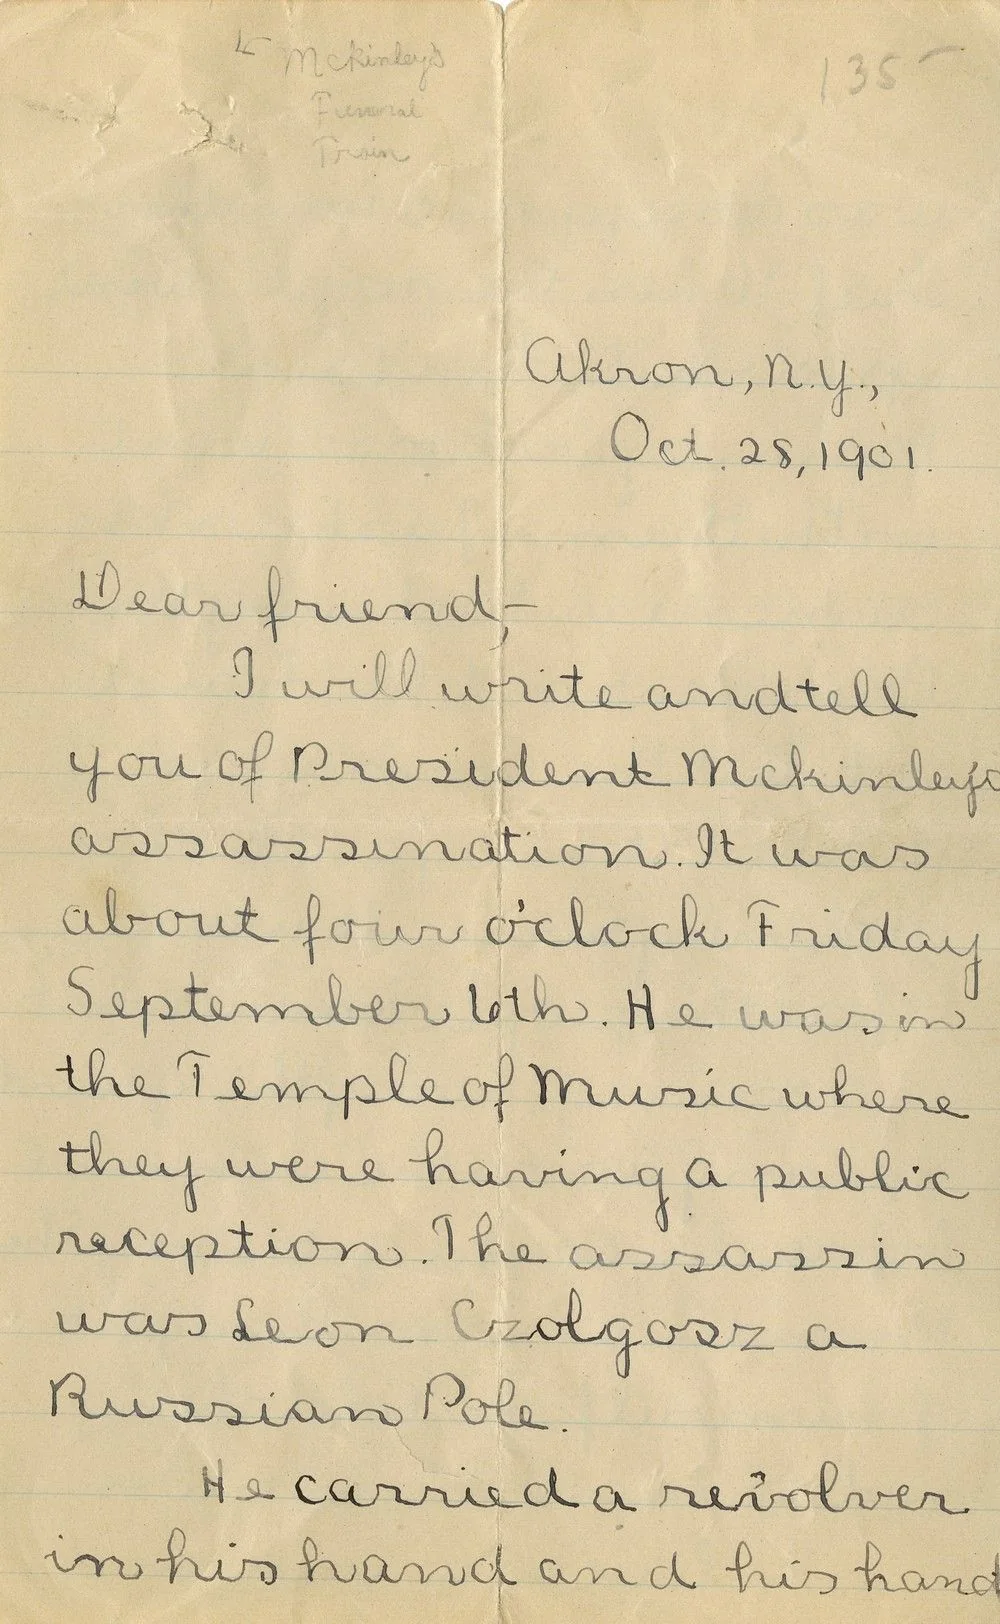 Mckinley's
Funeral
Train
135
Akron, N.Y.,
Oct. 28, 1901.
Dear friend,-
I will write and tell
you of President Mckinley's
assassination. It was
about four o'clock Friday
September 6th. He was in
the Temple of Music where
they were having a public
reception. The assassin
was Leon Czolgosz a
Russian Pole.
He carried a revolver
in his hand and his hand